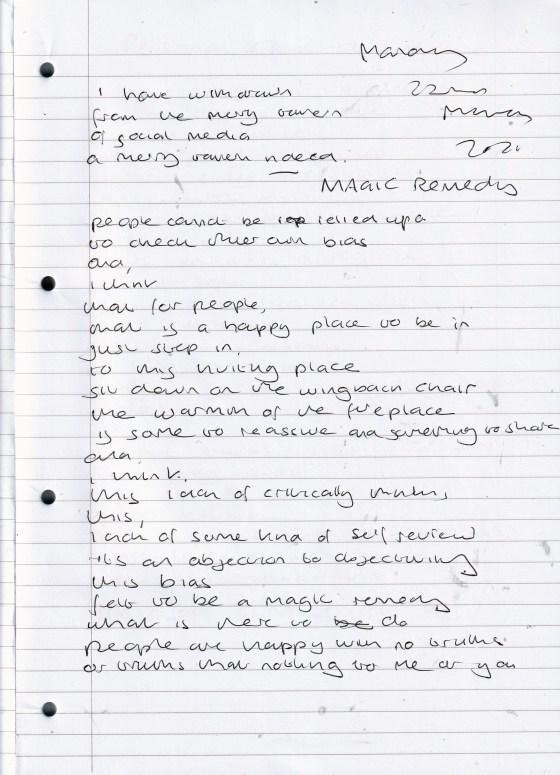 Monday
i have withdrawn
22nd
from the merry
March
of social media
2021
a merry indeed.
MAGIC Remedy
people cannot be relied upo
to check their own bias
and,
i think
that for people,
that is a happy place to be in
just step in,
to this inviting place
sit down on the wingback chair
the warmth of the fireplace
is some to reassure and something to share
and
i think.
this lack of critically thinking
this,
lack of some kind of self review
its an objection to objectivity
this bias
felt to be a magic remedy
what is there to do
people are happy with no truths
or truths that nothing to me or you